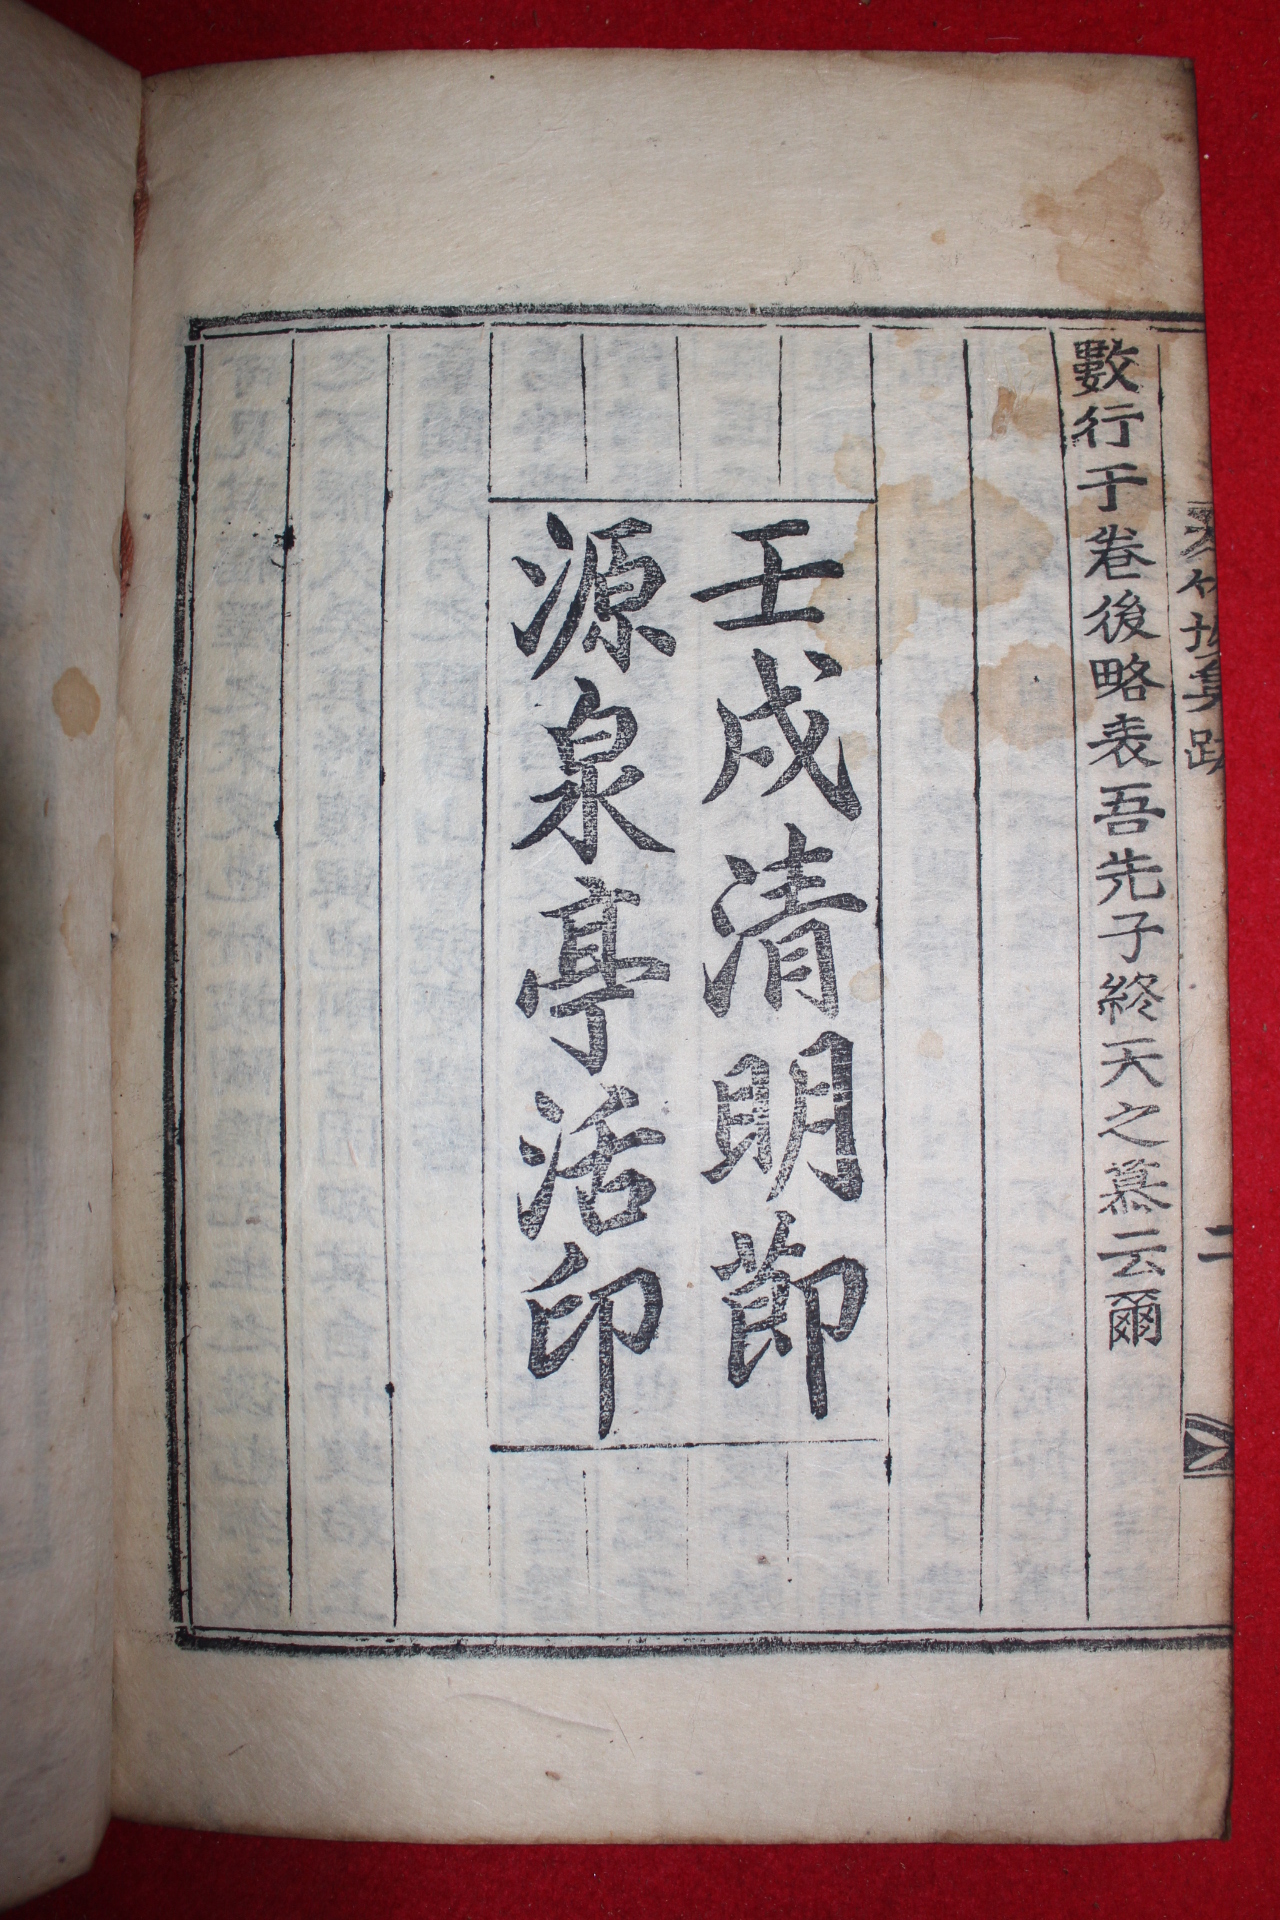 數行于卷後略表吾先子終天之慕云爾
壬戌清明節
源泉亭活印
二